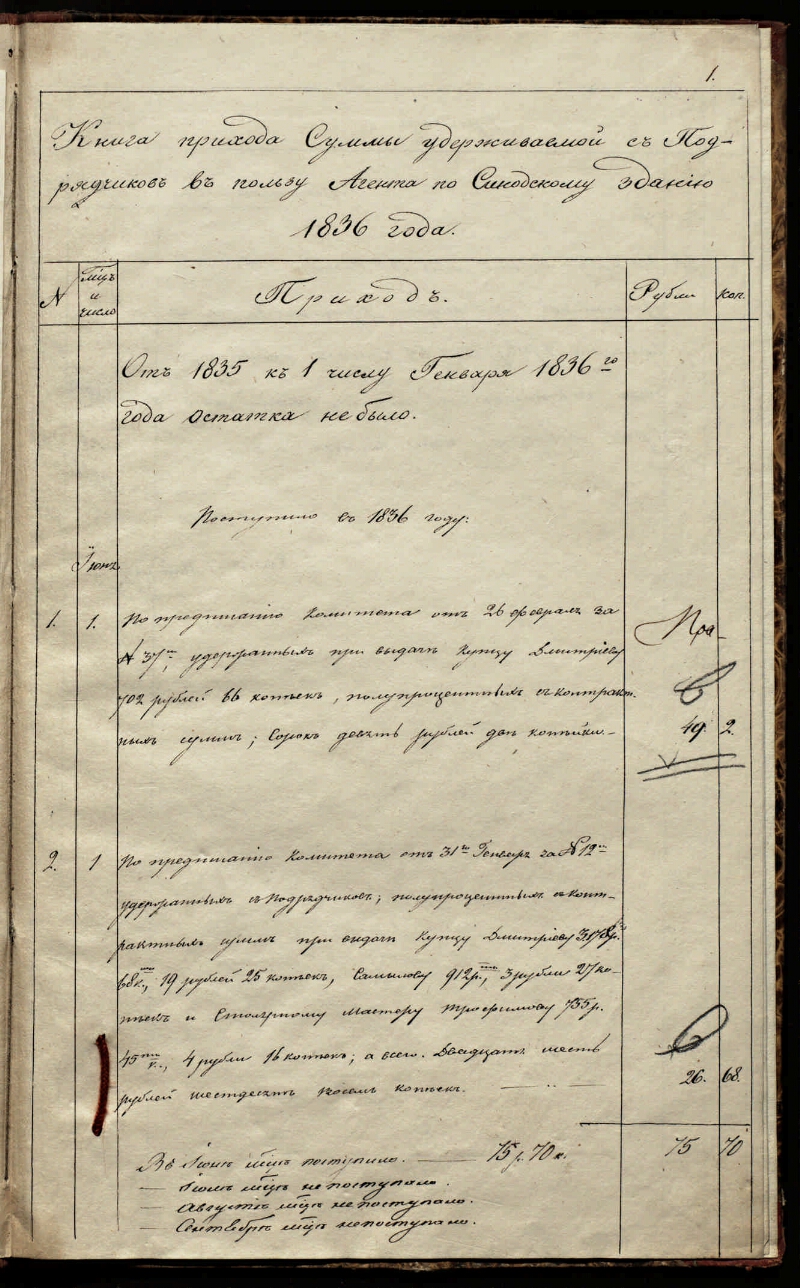 1.
Книга прихода Суммы удерживаемой съ Под-
рядчиковъ въ пользу Агента по Синодскому зданію
1836 года.
N Мцъ и число Приходъ. Рубли коп.
Отъ 1835 къ 1 числу Генваря 1836го
года остатка не было.
Поступило въ 1836 году:
Іюнь
1. 1. По предписанію Комитета отъ 26 февраля за
№ 37м, удержанныхъ при выдачѣ купцу Дмитріеву
702 рублей 66 копѣекъ, полупроцентныхъ съ контракт-
ныхъ суммъ; Сорокъ девять рублей двѣ копѣйки. 49. 2.
2. 1 По предписанію Комитета отъ 31го Генваря за № 12м
удержанныхъ съ Подрядчиковъ, полупроцентныхъ съ конт-
рактныхъ суммъ при выдачѣ купцу Дмитріеву р.
68к., 19 рублей 25 копѣекъ, Самылову 912р., 3 рубли 27 ко-
пѣекъ и Столярному Мастеру Трофимову 735 р.
45ти к., 4 рубли 16 копѣекъ; а всего. Двадцать шесть
рублей шестдесятъ восемь копѣекъ. 26. 68.
Въ Іюнѣ мцѣ поступило. — 75 р. 70 к. 75 70
— Іюлѣ мцѣ не поступало.
— Августѣ мцѣ не поступало.
— Сентябрѣ мцѣ не поступало.